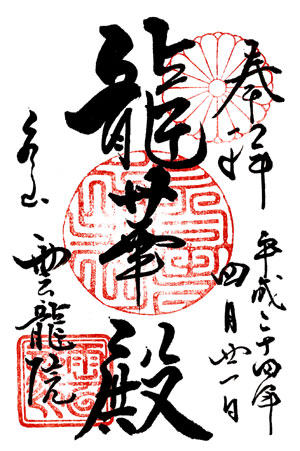 奉拝
平成二十四年
四月廿一日
龍華殿
泉山
雲龍院